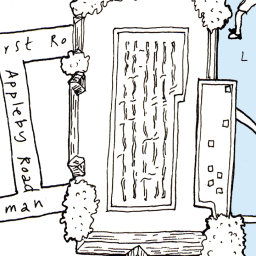 rst Ro
Appleby Road
man
L